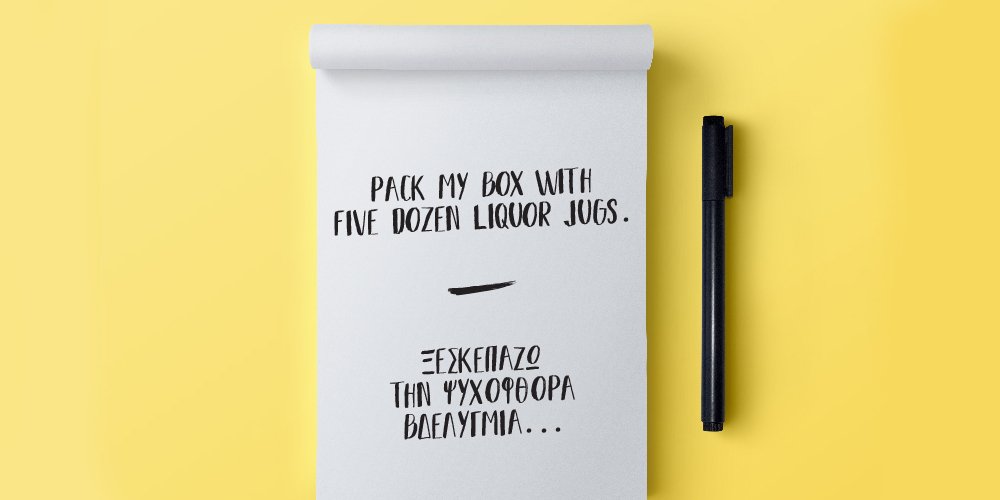 PACK MY BOX WITH
FIVE DOZEN LIQUOR JUGS.
ΞΕΣΚΕΠΑΖΩ
ΤΗΝ ΨΥΧΟΦΘΟΡΑ
ΒΔΕΛΥΓΜΙΑ...